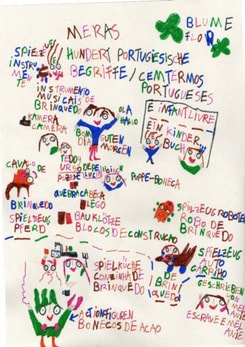 MERAS.
BLUME
FLOR
HUNDERT PORTUGIESISCHE
BEGRIFFE / CEM TERMOS
PORTUGUESES
SPIELZ
INSTRU
MEN
TE
INSTRUMENTO
MUSICAIS DE
BRINQUEDO
OLA
HALLO
KAMERA
CAMERA
BOM
DIA
GUTEN
MORGEN
E INFANTIL LIVRE
EIN KINDER
BUCH
TEDDY
URSO
CAVALO
DE
BRINQUEDO
PUPPE-BONECA
QUEBRA CABEÇA
LEGO
SPIELZEUG
PFERD
BAUKLÖTZE
BLOCOS DE CONSTRUCAO
SPIELZEUG ROBOTER
ROBO DE
BRINQUEDO
SPIELKÜCHE
COZINHA DE
BRINQUEDO
SPIELZEUG
CARRINHO
DE
BRINQUEDO
GESCHRIEBEN
VON
MELANIE
ESCRAVE
ACTIONFIGUREN
BONECOS DE ACAO